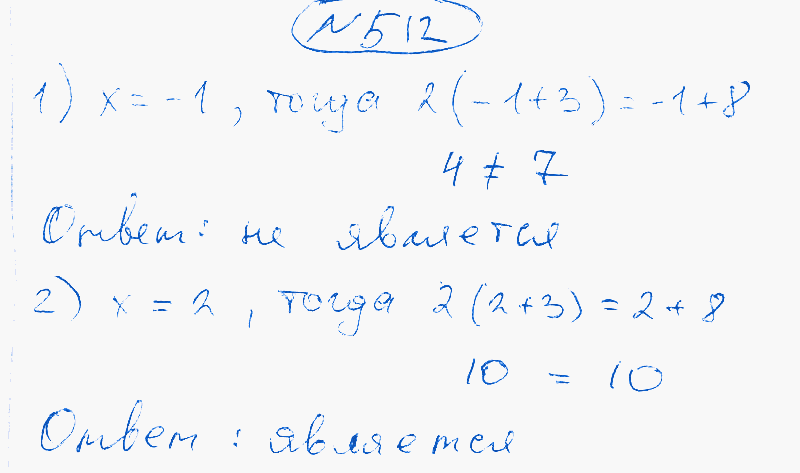 №512
1) x = -1, тогда 2(-1+3) = -1+8
4 ≠ 7
Ответ: не является
2) x = 2, тогда 2(2+3) = 2+8
10 = 10
Ответ: является